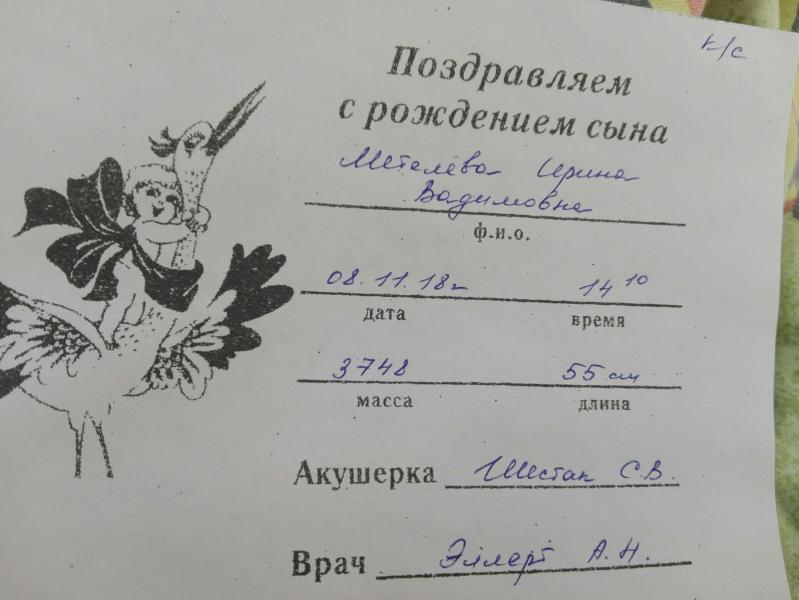 к/с
Поздравляем
с рождением сына
Метелёва Ирина
Вадимовна
ф.и.о.
08.11.18г 14 10
дата время
3748 55 см
масса длина
Акушерка Шестак С.В.
Врач Эллерт А.Н.